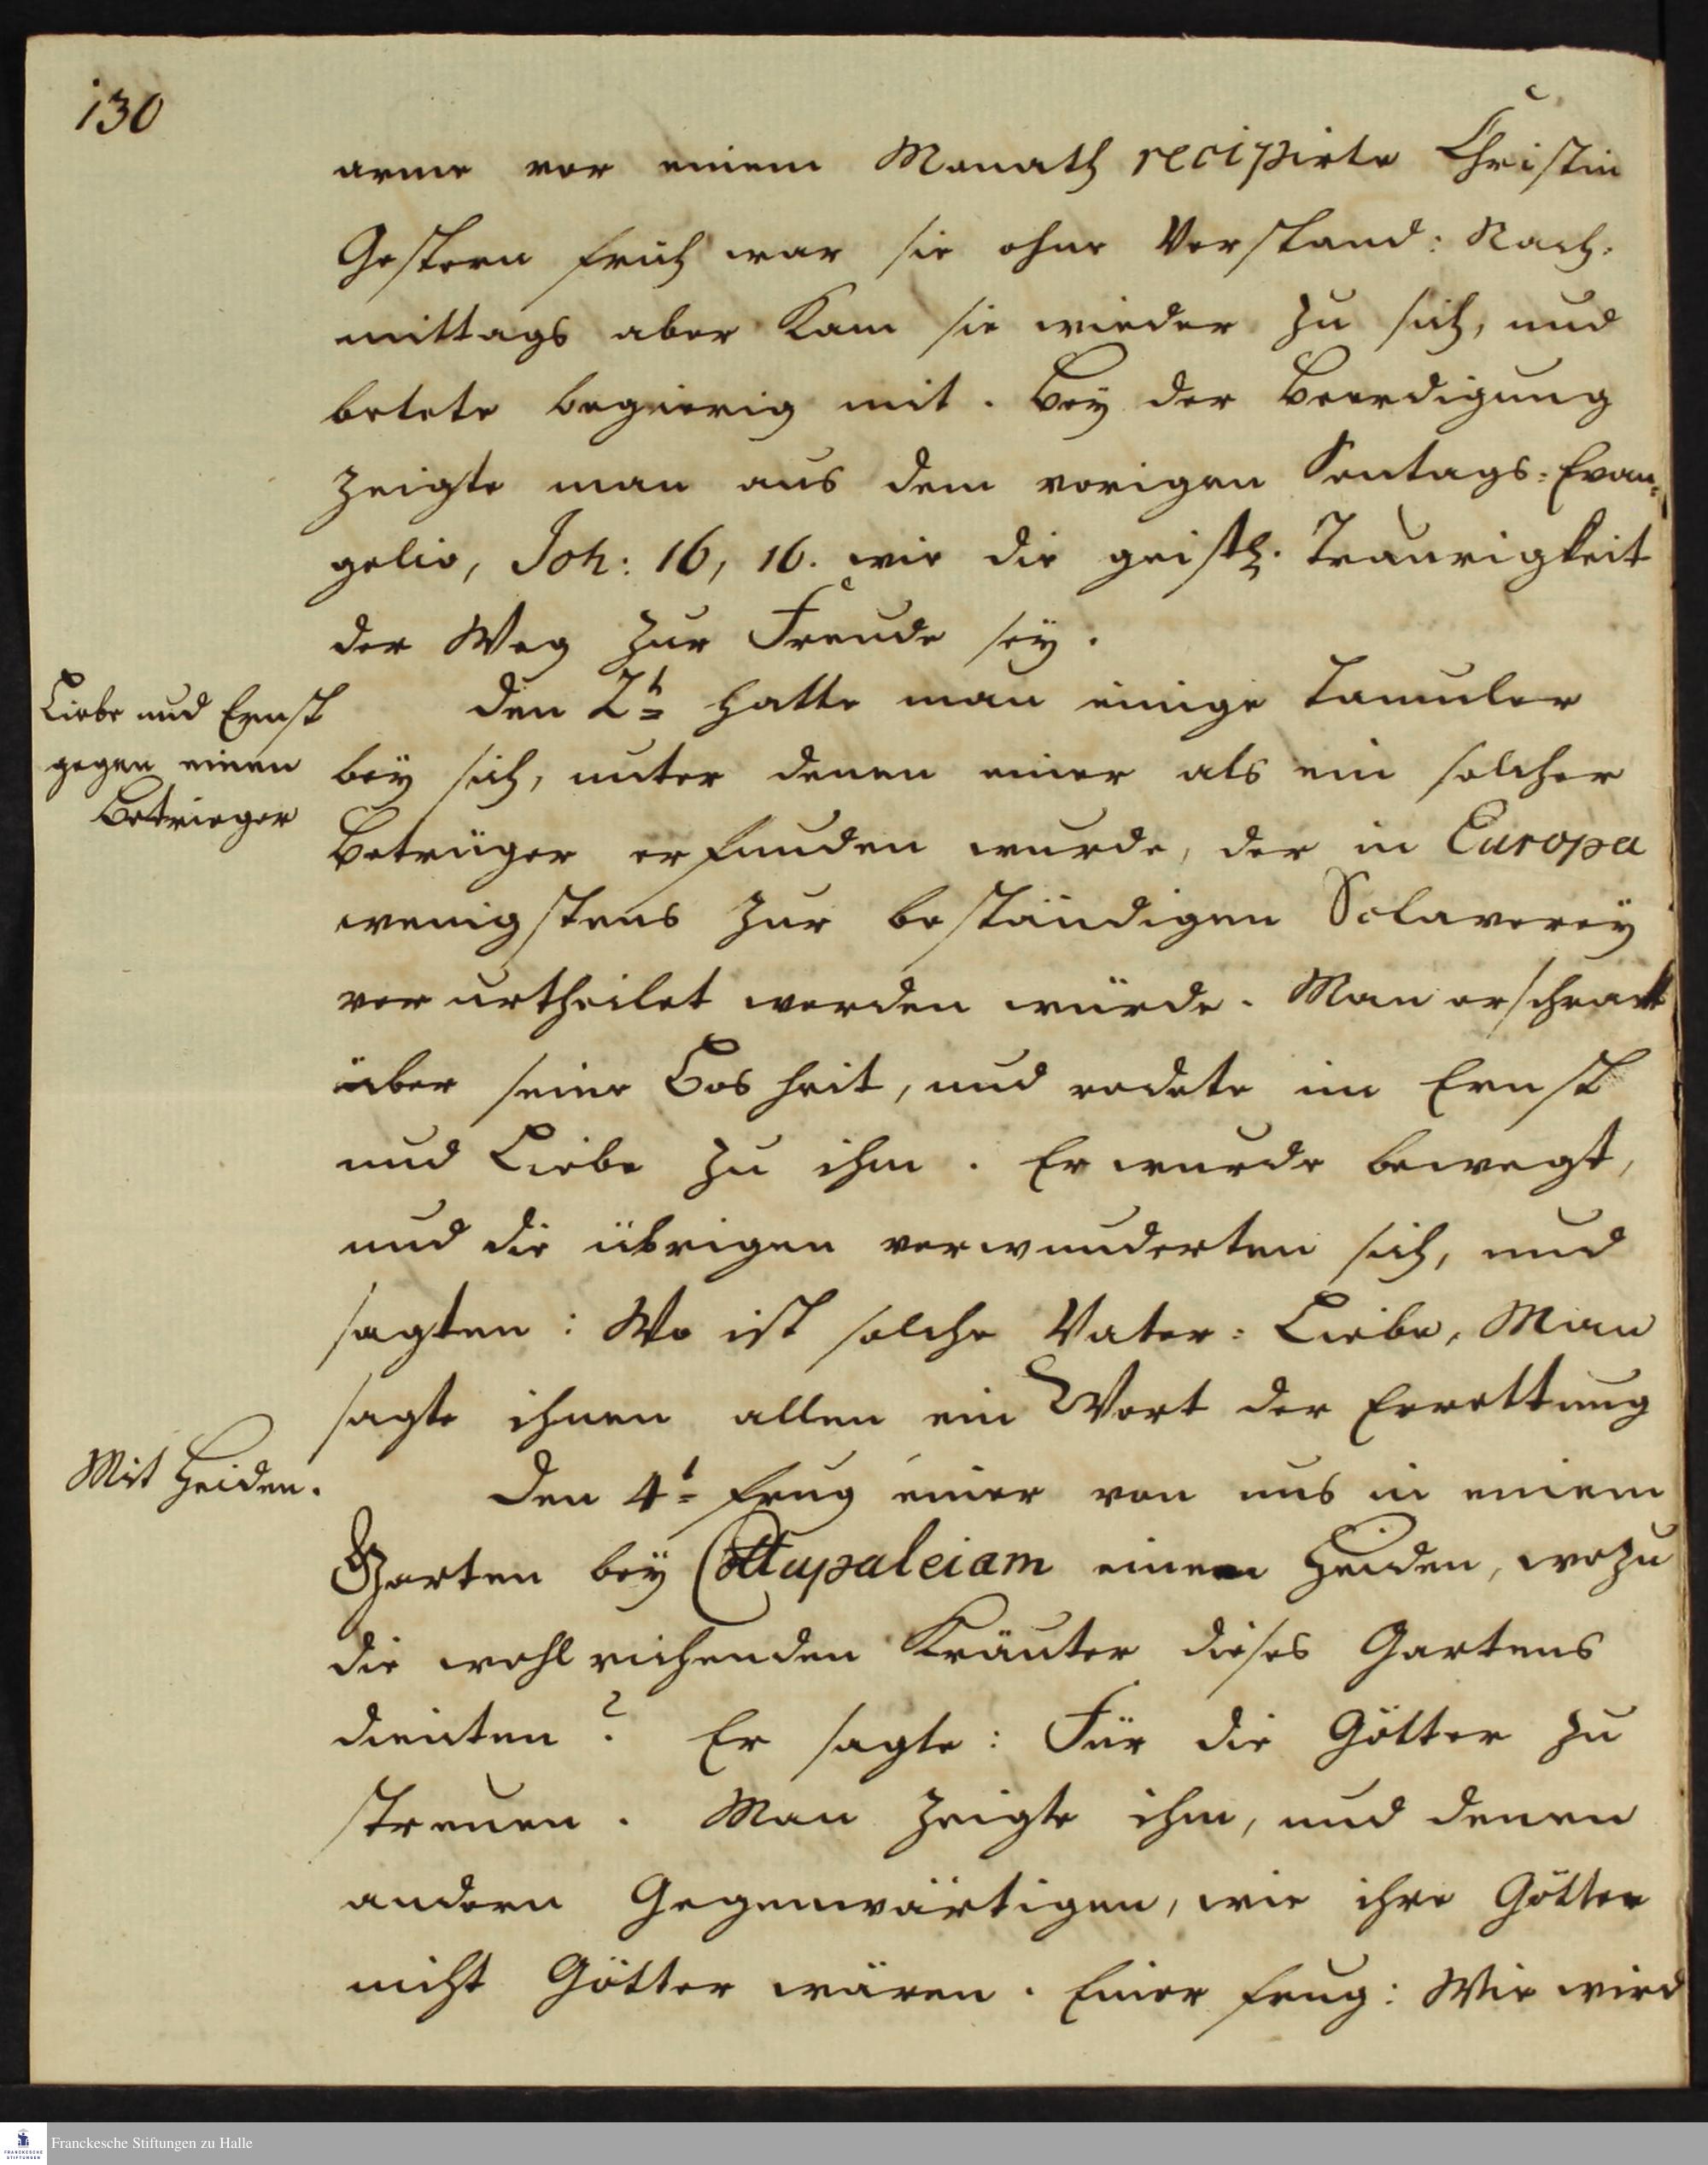 130
arme vor einem Monath recipirte Christin
Gestern früh war sie ohne Verstand: Nach-
mittags aber kam sie wieder zu sich, und
betete begierig mit. Bey der Beerdigung
zeigte man aus dem vorigen Sontags-Evan-
gelio, Joh: 16, 16. wie die geistl. Traurigkeit
der Weg zur Freude sey.
Liebe und Ernst
gegen einen
Betrieger
den 2t hatte man einige Tamuler
bey sich, unter denen einer als ein solcher
Betrüger erfunden wurde, der in Europa
wenigstens zur beständigen Sclaverey
verurtheilet werden würde. Man erschrack
über seine Bosheit, und redete im Ernst
und Liebe zu ihm. Er wurde bewegt,
und die übrigen verwunderten sich, und
sagten: Wo ist solche Vater-Liebe, Man
sagte ihnen allen ein Wort der Errettung
Mit Heiden.
den 4t frug einer von uns in einem
Garten bey Cottupaleiam einen Heiden, wozu
die wohlriechenden Kräuter dieses Gartens
dienten? Er sagte: Für die Götter zu
streuen. Man zeigte ihm, und denen
andern Gegenwärtigen, wie ihre Götter
nicht Götter wären. Einer frug: Wie wird
Franckesche Stiftungen zu Halle